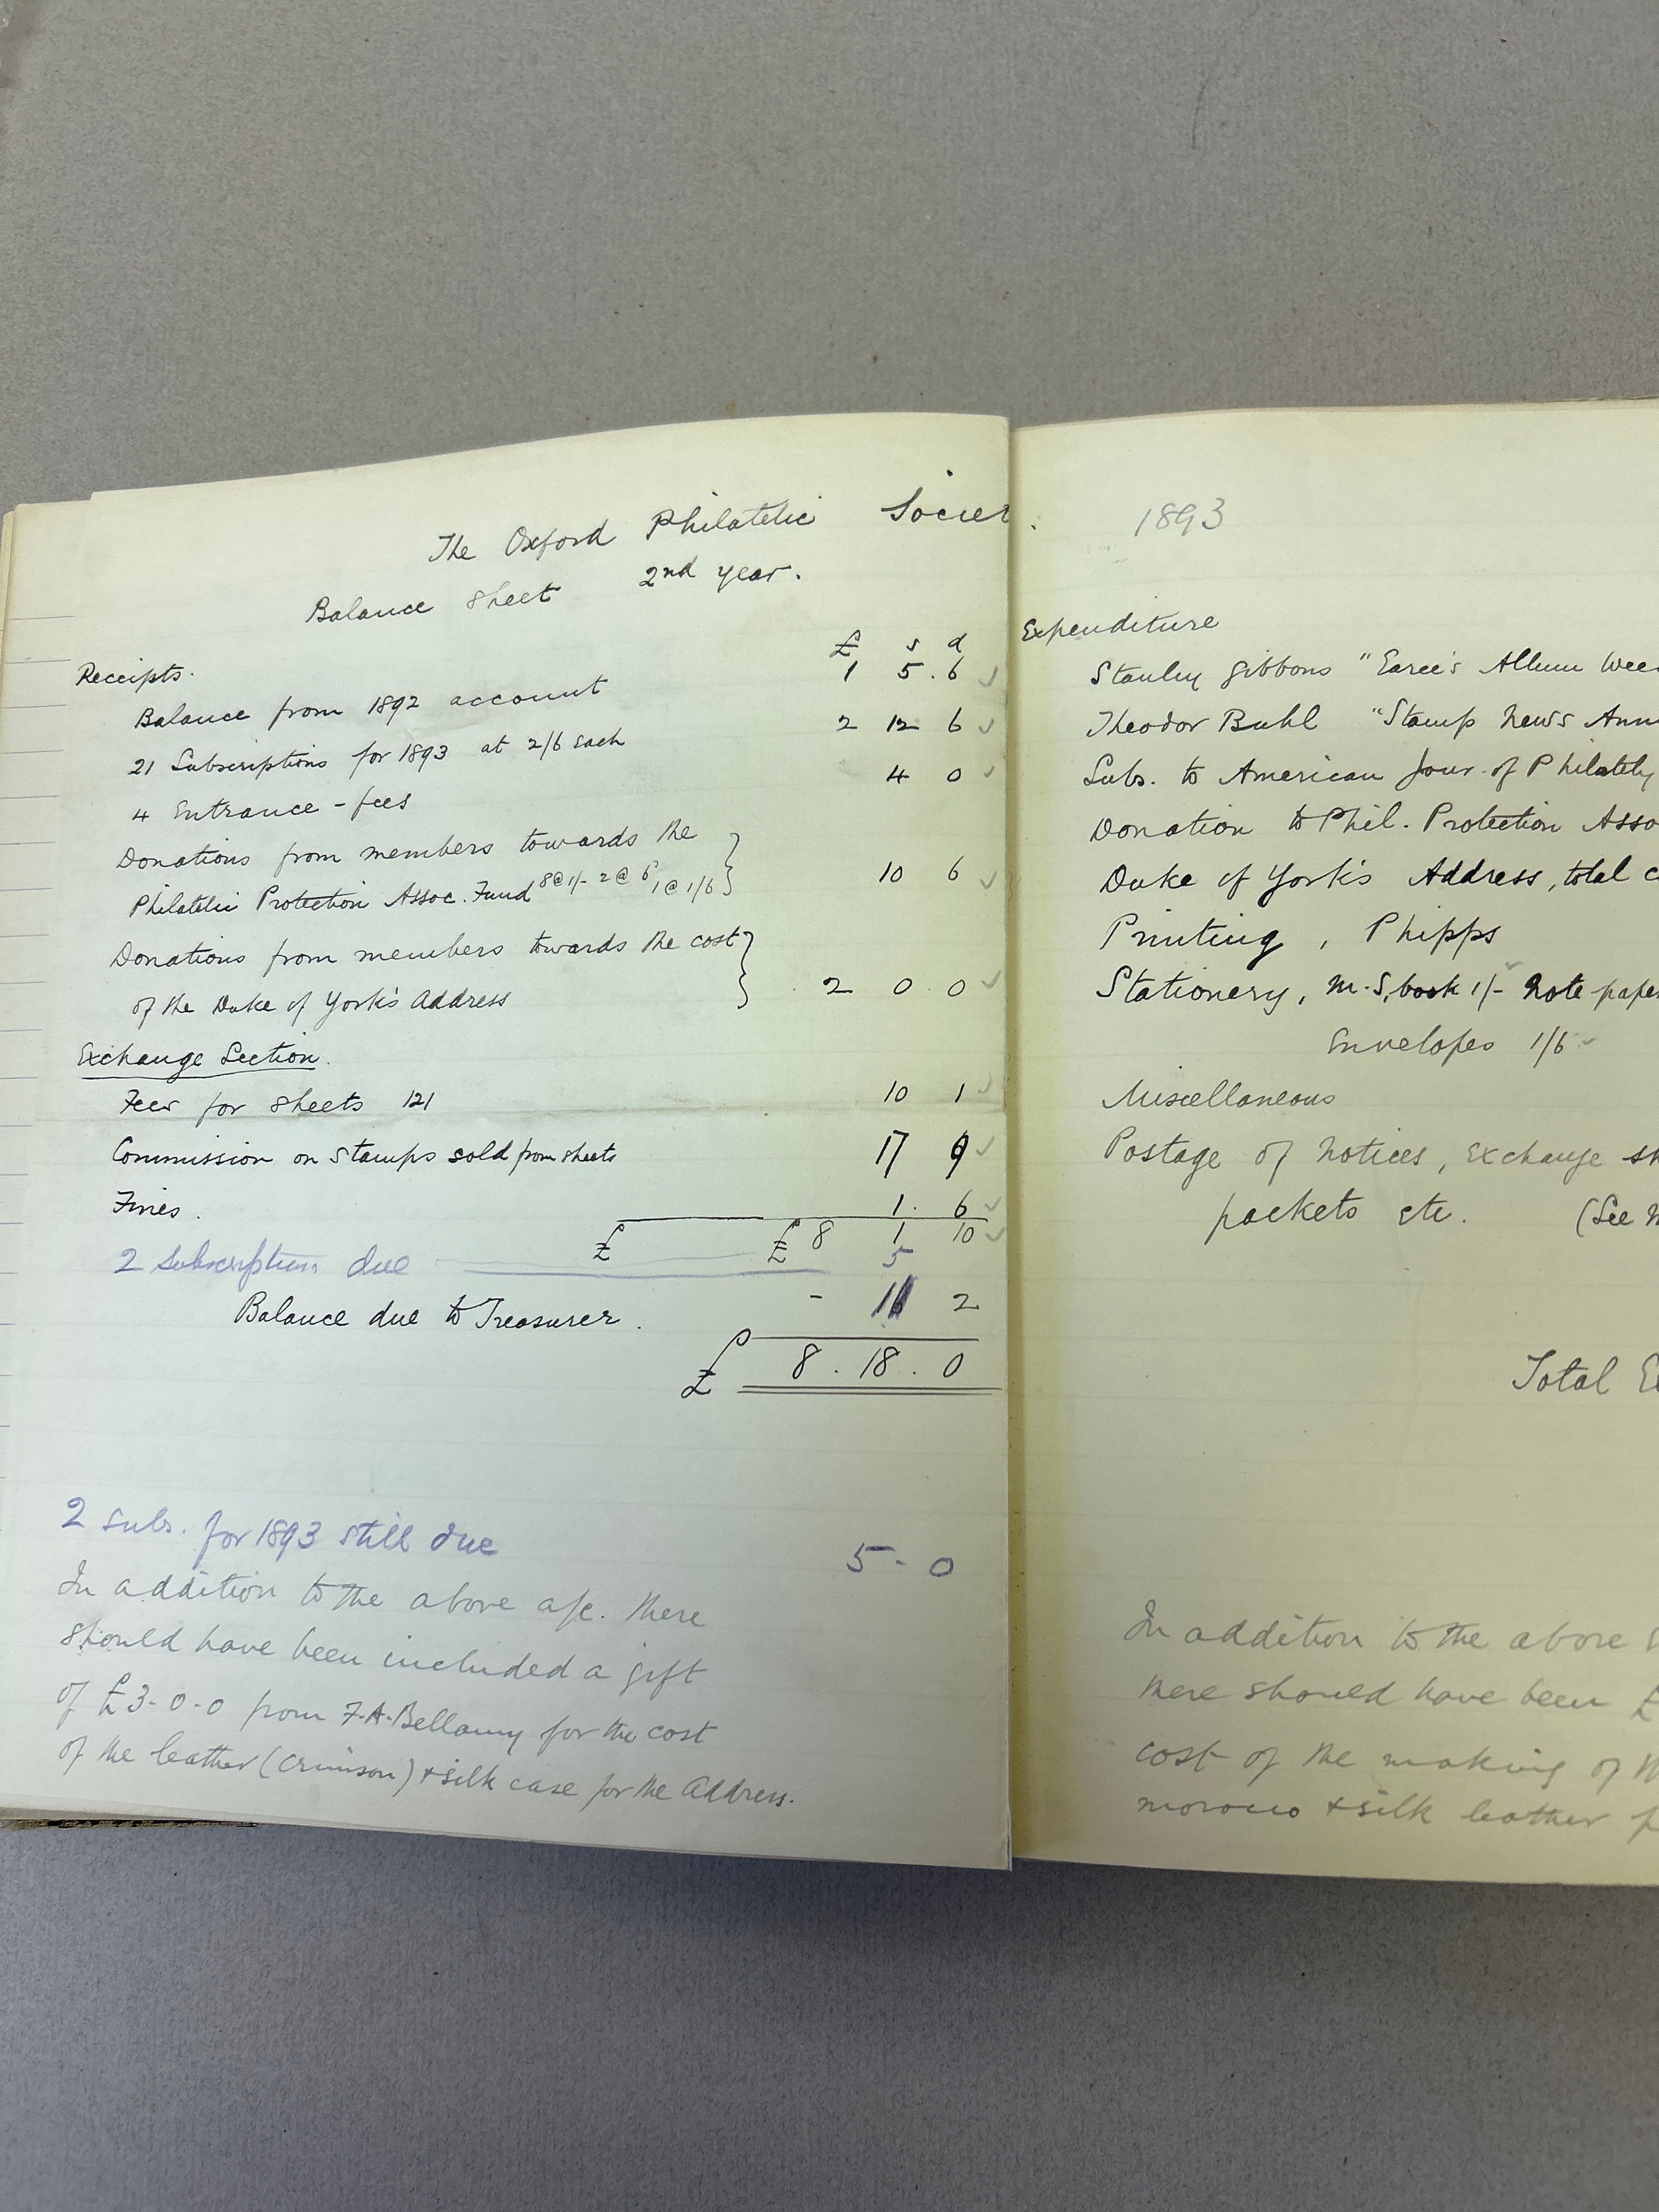 The Oxford Philatelic Societ
Balance Sheet 2nd year.
£ s d
Receipts.
Balance from 1892 account 1 5.6
21 Subscriptions for 1893 at 2/6 each 2 12 6
4 Entrance-fees 4 0
Donations from members towards the
Philatelic Protection Assoc. Fund 8@1/- 2@6 1@1/6 } 10 6
Donations from members towards the cost
of the Duke of York's Address } 2 0.0
Exchange Section.
Fees for sheets 121 10 1
Commission on stamps sold from sheets 17 9
Fines. 1. 6
£ £ 8 1 10
2 Subscriptions due 5
Balance due to Treasurer. - 11 2
£ 8.18.0
2 subs. for 1893 still due 5-0
In addition to the above a/c. there
should have been included a gift
of £3-0-0 from F.A.Bellamy for the cost
of the leather (crimson) + silk case for the Address.
1893
Expenditure
Stanley Gibbons "Earee's Album Wee
Theodor Buhl "Stamp News Ann
Subs. to American Jour. of Philately
Donation to Phil. Protection Asso
Duke of York's Address, total c
Printing, Phipps
Stationery, M.S. book 1/- Note pape
Envelopes 1/6
Miscellaneous
Postage of Notices, Exchange sh
packets etc. (See
Total E
In addition to the above
there should have been £
cost of the making of
morocco + silk leather